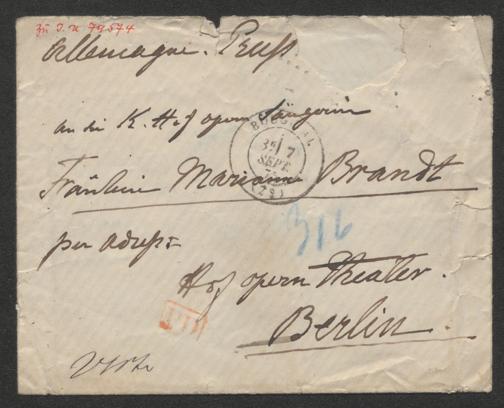 zu I. N 79574
Allemagne. Preuß
an die K. Hof opern Sängerin
BOUGIVAL
3E 7 SEPT.
Fräulein Marianne Brandt
per adreß=
316
Hof opern Theater.
Berlin